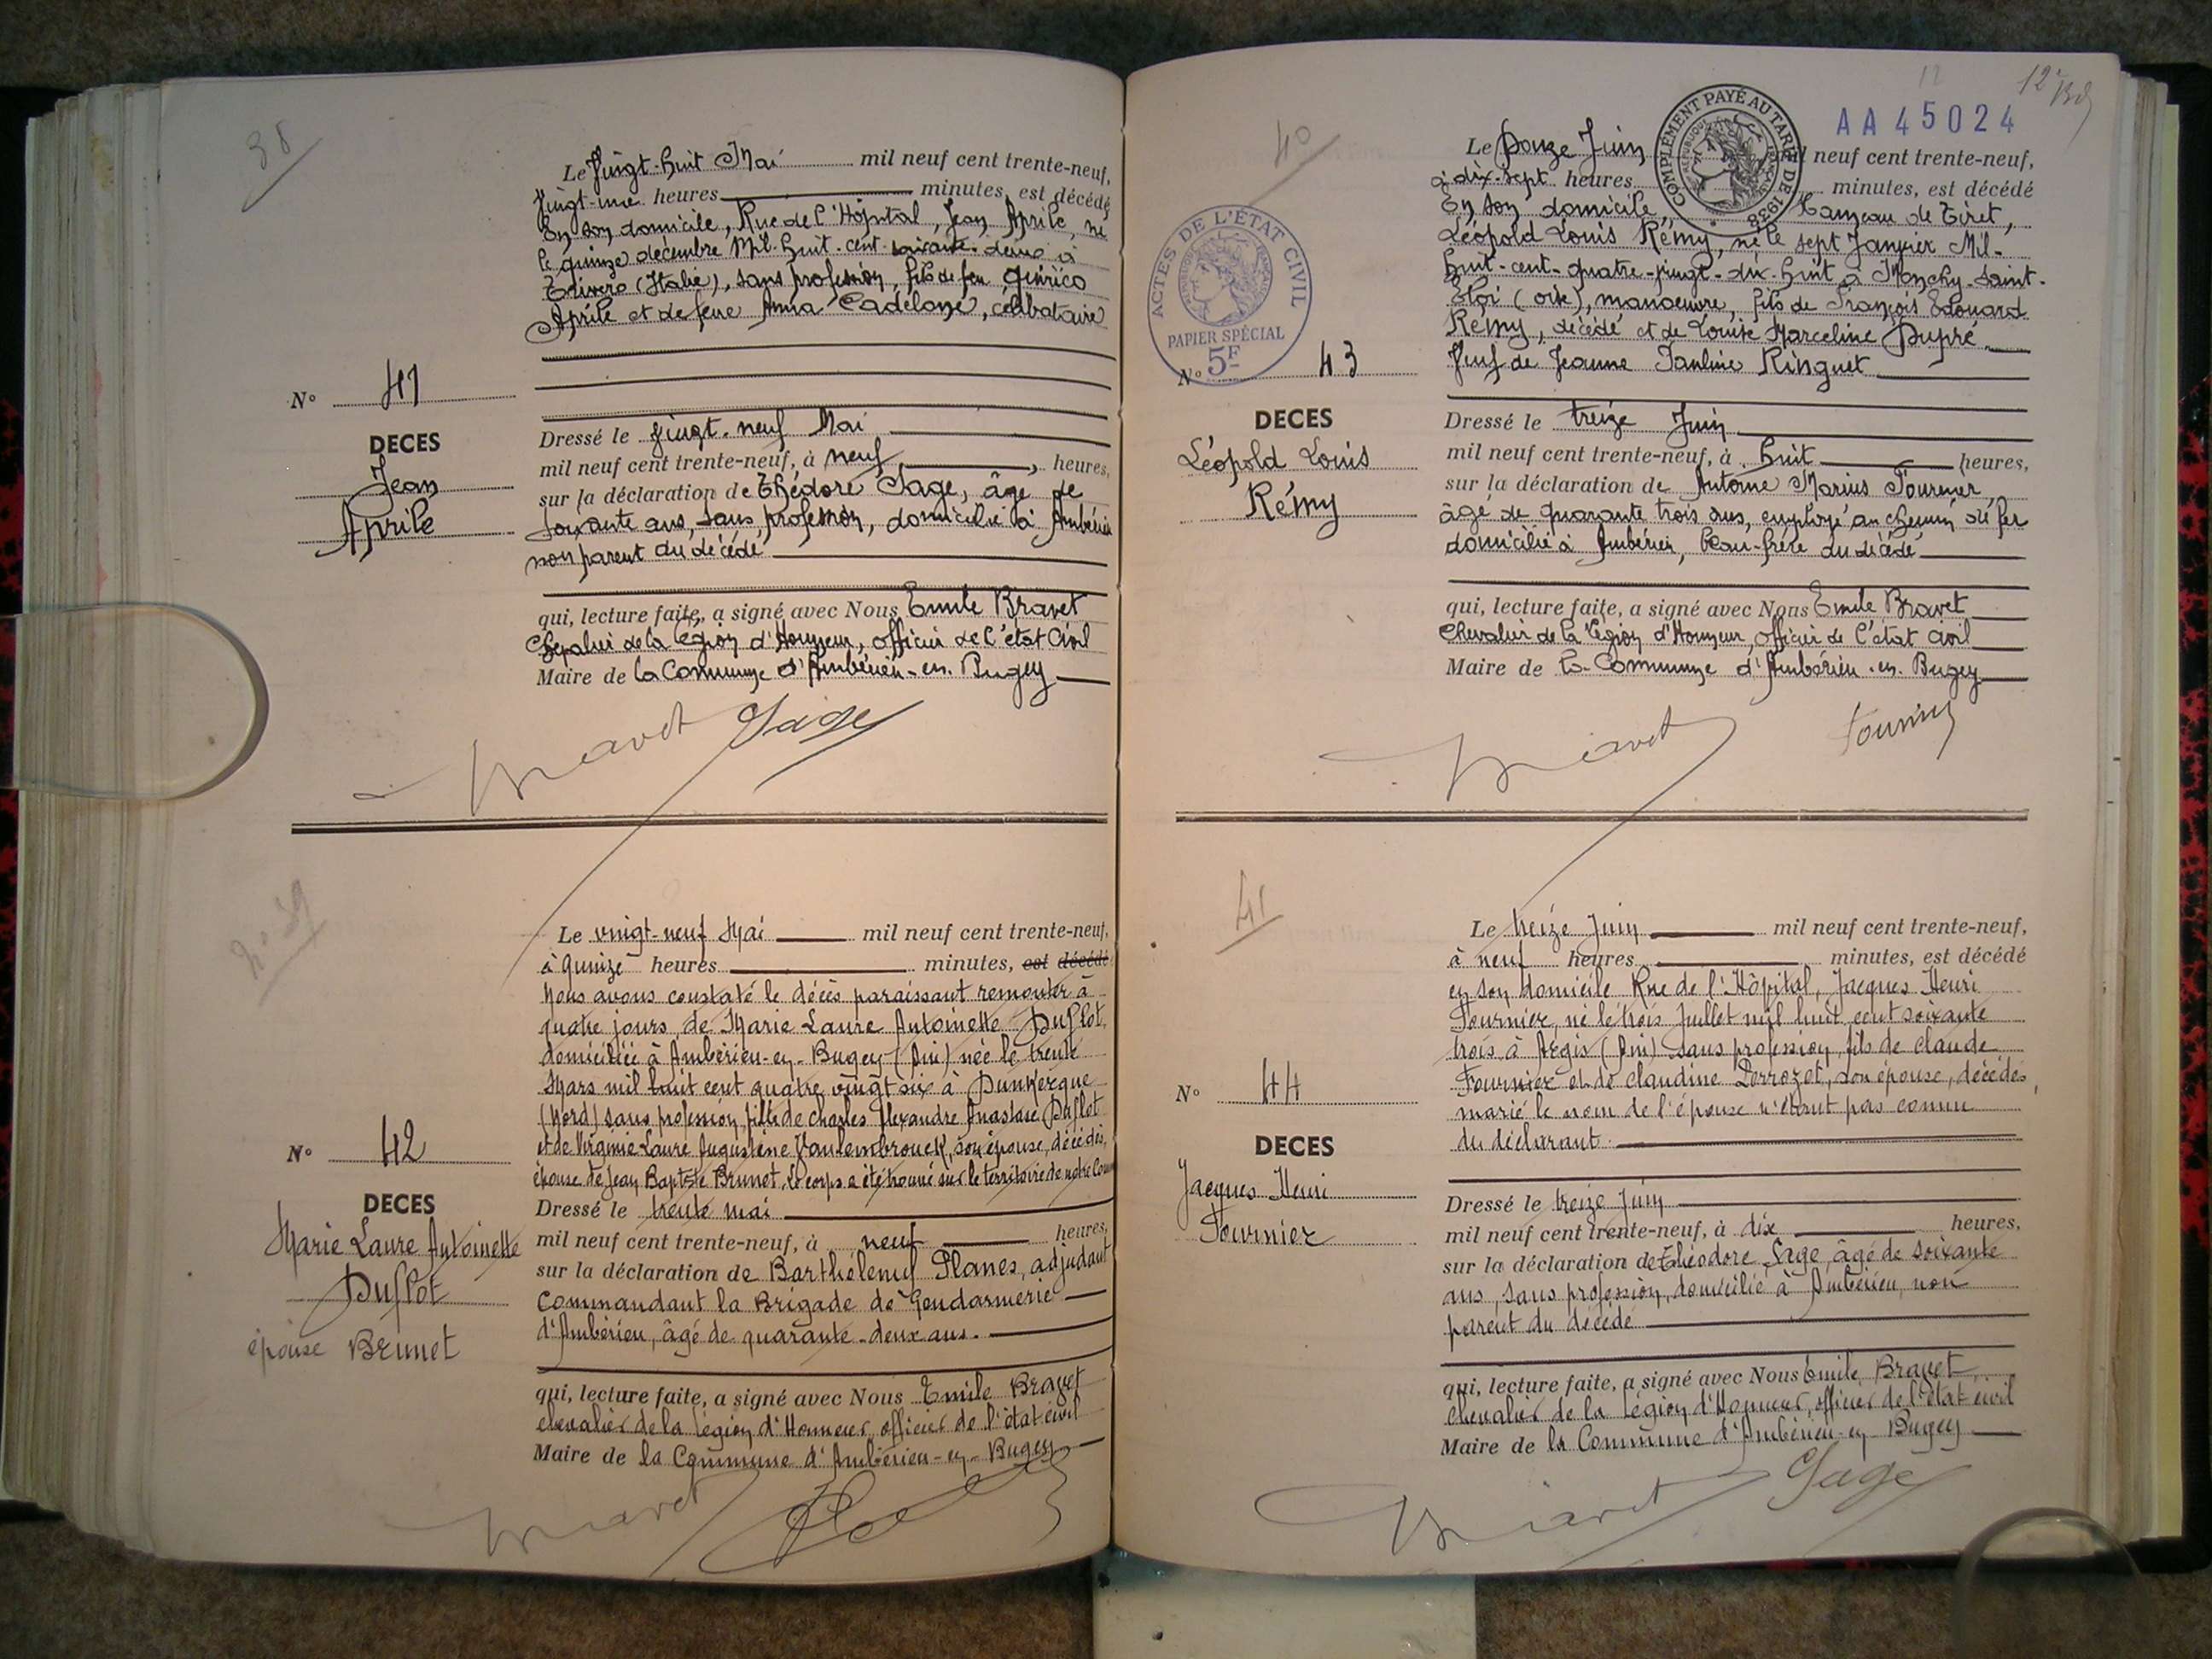 38
Le Vingt-huit Mai mil neuf cent trente-neuf,
Vingt-une heures minutes, est décédé
En son domicile, Rue de l'Hôpital, Jean Aprile, né
le quinze décembre Mil-huit-cent-soixante-deux à
Trivero (Italie), sans profession, fils de feu Quirico
Aprile et de feue Anna Cadelone, célibataire
N° 41
DECES
Jean
Aprile
Dressé le Vingt-neuf Mai
mil neuf cent trente-neuf, à neuf, heures,
sur la déclaration de Théodore Sage, âgé de
soixante ans, sans profession, domicilié à Ambérieu
non parent du décédé
qui, lecture faite, a signé avec Nous Emile Bravet
Chevalier de la Légion d'Honneur, officier de l'état Civil
Maire de la Commune d'Ambérieu-en-Bugey
Bravet Sage
Le vingt-neuf Mai mil neuf cent trente-neuf,
à quinze heures minutes, est décédé
Nous avons constaté le décès paraissant remonter à
quatre jours de Marie Laure Antoinette Duflot
domiciliée à Ambérieu-en-Bugey (Ain) née le trente
Mars mil huit cent quatre vingt six à Dunkerque
(Nord) sans profession, fille de Charles Alexandre Anastase Duflot
et de Virginie Laure Augustine Vanlembrouck, son épouse, décédés,
épouse de Jean Baptiste Brunet, le corps a été trouvé sur le territoire de notre
N° 42
DECES
Marie Laure Antoinette
Duflot
épouse Brunet
Dressé le trente mai
mil neuf cent trente-neuf, à neuf heures,
sur la déclaration de Barthélemy Planes, adjudant
Commandant la Brigade de Gendarmerie
d'Ambérieu, âgé de quarante-deux ans.
qui, lecture faite, a signé avec Nous Emile Bravet
chevalier de la Légion d'Honneur officier de l'état civil
Maire de la Commune d'Ambérieu-en-Bugey
Bravet
12
AA 45024
40
COMPLÉMENT PAYÉ AU TARIF DE 1938
Le Douze Juin mil neuf cent trente-neuf,
à dix-sept heures minutes, est décédé
En son domicile, Hameau de Tiret,
Léopold Louis Rémy, né le sept Janvier Mil-
huit-cent-quatre-vingt-dix-huit à Monchy-Saint-
Eloi (Oise), manoeuvre, fils de François Edouard
Rémy, décédé et de Louise Marceline Dupré
Veuf de Jeanne Pauline Ringuet
ACTES DE L'ÉTAT CIVIL
RÉPUBLIQUE FRANÇAISE
PAPIER SPÉCIAL
5F
N° 43
DECES
Léopold Louis
Rémy
Dressé le treize Juin
mil neuf cent trente-neuf, à huit heures,
sur la déclaration de Antoine Marius Fournier,
âgé de quarante trois ans, employé au chemin de fer
domicilié à Ambérieu, beau-frère du décédé
qui, lecture faite, a signé avec Nous Emile Bravet
Chevalier de la Légion d'Honneur, officier de l'état civil
Maire de la Commune d'Ambérieu-en-Bugey
Bravet Fournier
41
Le treize Juin mil neuf cent trente-neuf,
à neuf heures minutes, est décédé
en son domicile Rue de l'Hôpital, Jacques Henri
Fournier, né le trois Juillet mil huit cent soixante
trois à Argis (Ain) sans profession, fils de Claude
Fournier et de Claudine Perrozet, son épouse, décédés,
marié le nom de l'épouse n'étant pas connu
du déclarant.
N° 44
DECES
Jacques Henri
Fournier
Dressé le treize Juin
mil neuf cent trente-neuf, à dix heures,
sur la déclaration de Théodore Sage, âgé de soixante
ans, sans profession, domicilié à Ambérieu, non
parent du décédé
qui, lecture faite, a signé avec Nous Emile Bravet
chevalier de la Légion d'Honneur, officier de l'état civil
Maire de la Commune d'Ambérieu-en-Bugey
Bravet Sage